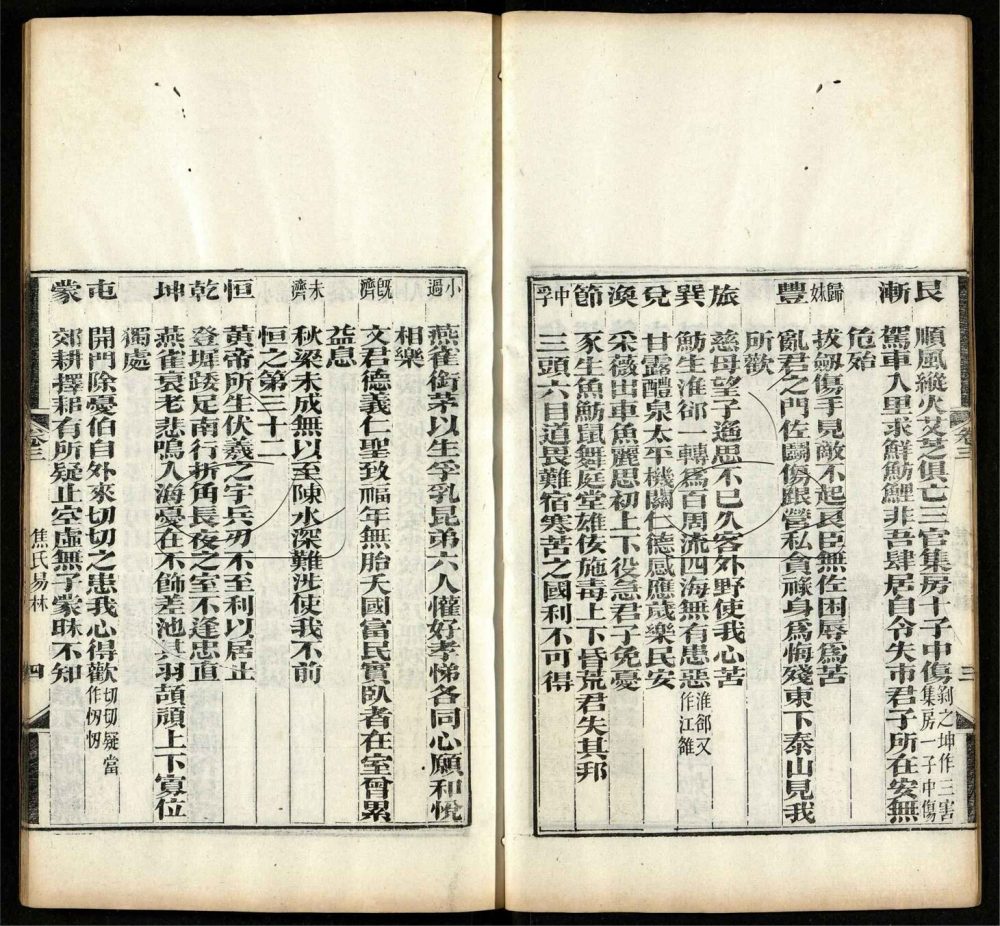 艮　順風縱火艾芝俱亡三官集房十子中傷剝之坤作三害集房一子中傷
漸　駕車入里求鮮魴鯉非吾肆居自令失市君子所在安無
危殆
歸妹　拔劒傷手見敵不起良臣無佐困辱爲苦
豐　亂君之門佐鬭傷跟營私貪祿身爲悔殘東下泰山見我
所歡
旅　慈母望子遙思不已久客外野使我心苦
巽　魴生淮郃一轉爲百周流四海無有患惡淮郃又作江雒
兌　甘露醴泉太平機關仁德感應歲樂民安
渙　采薇出車魚麗思初上下役急君子免憂
節　豕生魚魴鼠舞庭堂雄佞施毒上下昏荒君失其邦
中孚　三頭六目道畏難宿寒苦之國利不可得
卷三
三
小過　燕雀銜茅以生孚乳昆弟六人懽好孝悌各同心願和悅
相樂
旣濟　文君德義仁聖致福年無胎夭國富民實臥者在室曾累
益息
未濟　秋梁未成無以至陳水深難涉使我不前
恒之第三十二
恒　黃帝所生伏羲之宇兵刃不至利以居止
乾　登墀踒足南行折角長夜之室不逢忠直
坤　燕雀衰老悲鳴入海憂在不飾差池其羽頡頏上下寡位
獨處
屯　開門除憂伯自外來切切之患我心得歡切切疑當作忉忉
蒙　郊耕擇耜有所疑止空虛無子蒙昧不知
卷三
焦氏易林
四